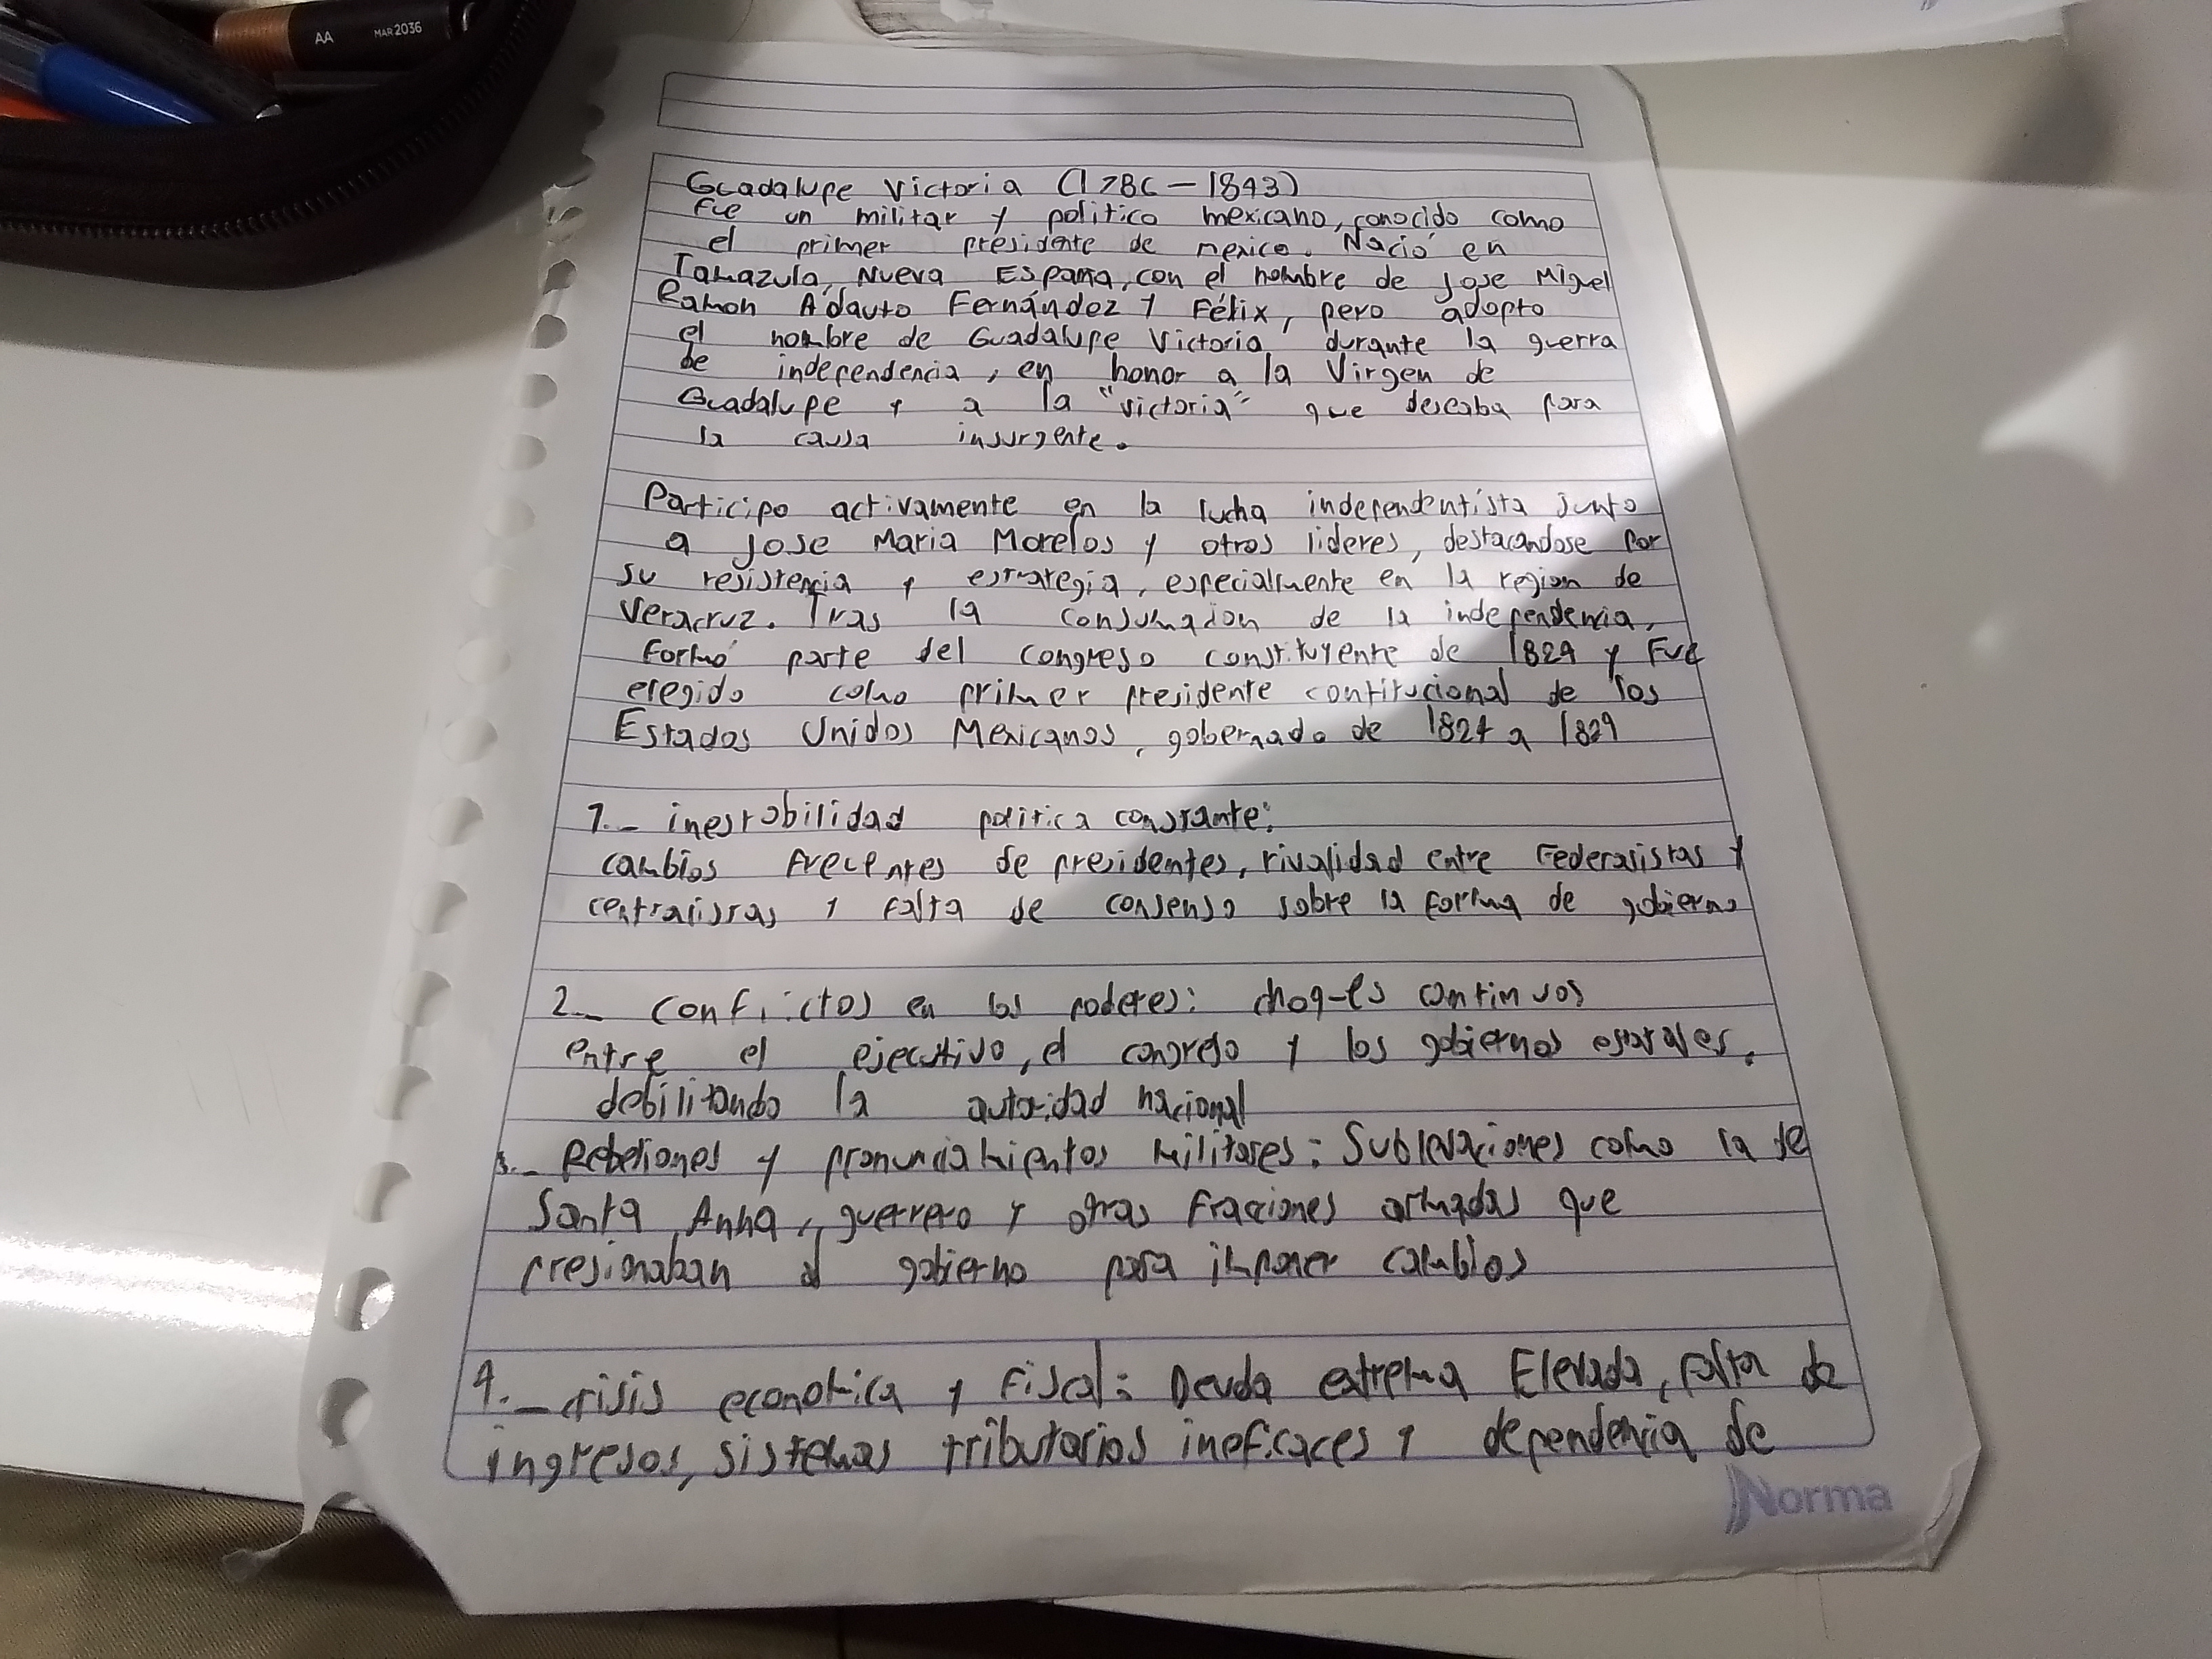 AA MAR 2036
Guadalupe Victoria (1786-1843)
Fue un militar y politico mexicano, conocido como
el primer presidente de mexico. Nació en
Tamazula, Nueva España, con el nombre de Jose Miguel
Ramon Adauto Fernández y Félix, pero adopto
el nombre de Guadalupe Victoria durante la guerra
de independencia, en honor a la Virgen de
Guadalupe y a la "victoria" que deseaba para
la causa insurgente.
Participo activamente en la lucha independentista junto
a Jose Maria Morelos y otros lideres, destacandose por
su resistencia y estrategia, especialmente en la region de
Veracruz. Tras la consumacion de la independencia,
Formó parte del congreso constituyente de 1824 y Fue
elegido como primer presidente contitucional de los
Estados Unidos Mexicanos, gobernado de 1824 a 1829
1.- inestabilidad politica constante:
cambios frecentes de presidentes, rivalidad entre Federalistas y
centralistas y falta de consenso sobre la forma de gobierno
2.- Conflictos en los poderes: choques continuos
entre el ejecutivo, el congreso y los gobiernos estatales,
debilitando la autoridad nacional
3.- Rebeliones y pronunciamientos militares: Sublevaciones como la de
Santa Anna, guerrero y otras fracciones armadas que
presionaban al gobierno para imponer cambios
4.- crisis economica y Fiscal: Deuda extrema Elevada, falta de
ingresos, sistemas tributarios ineficaces y dependencia de
Norma